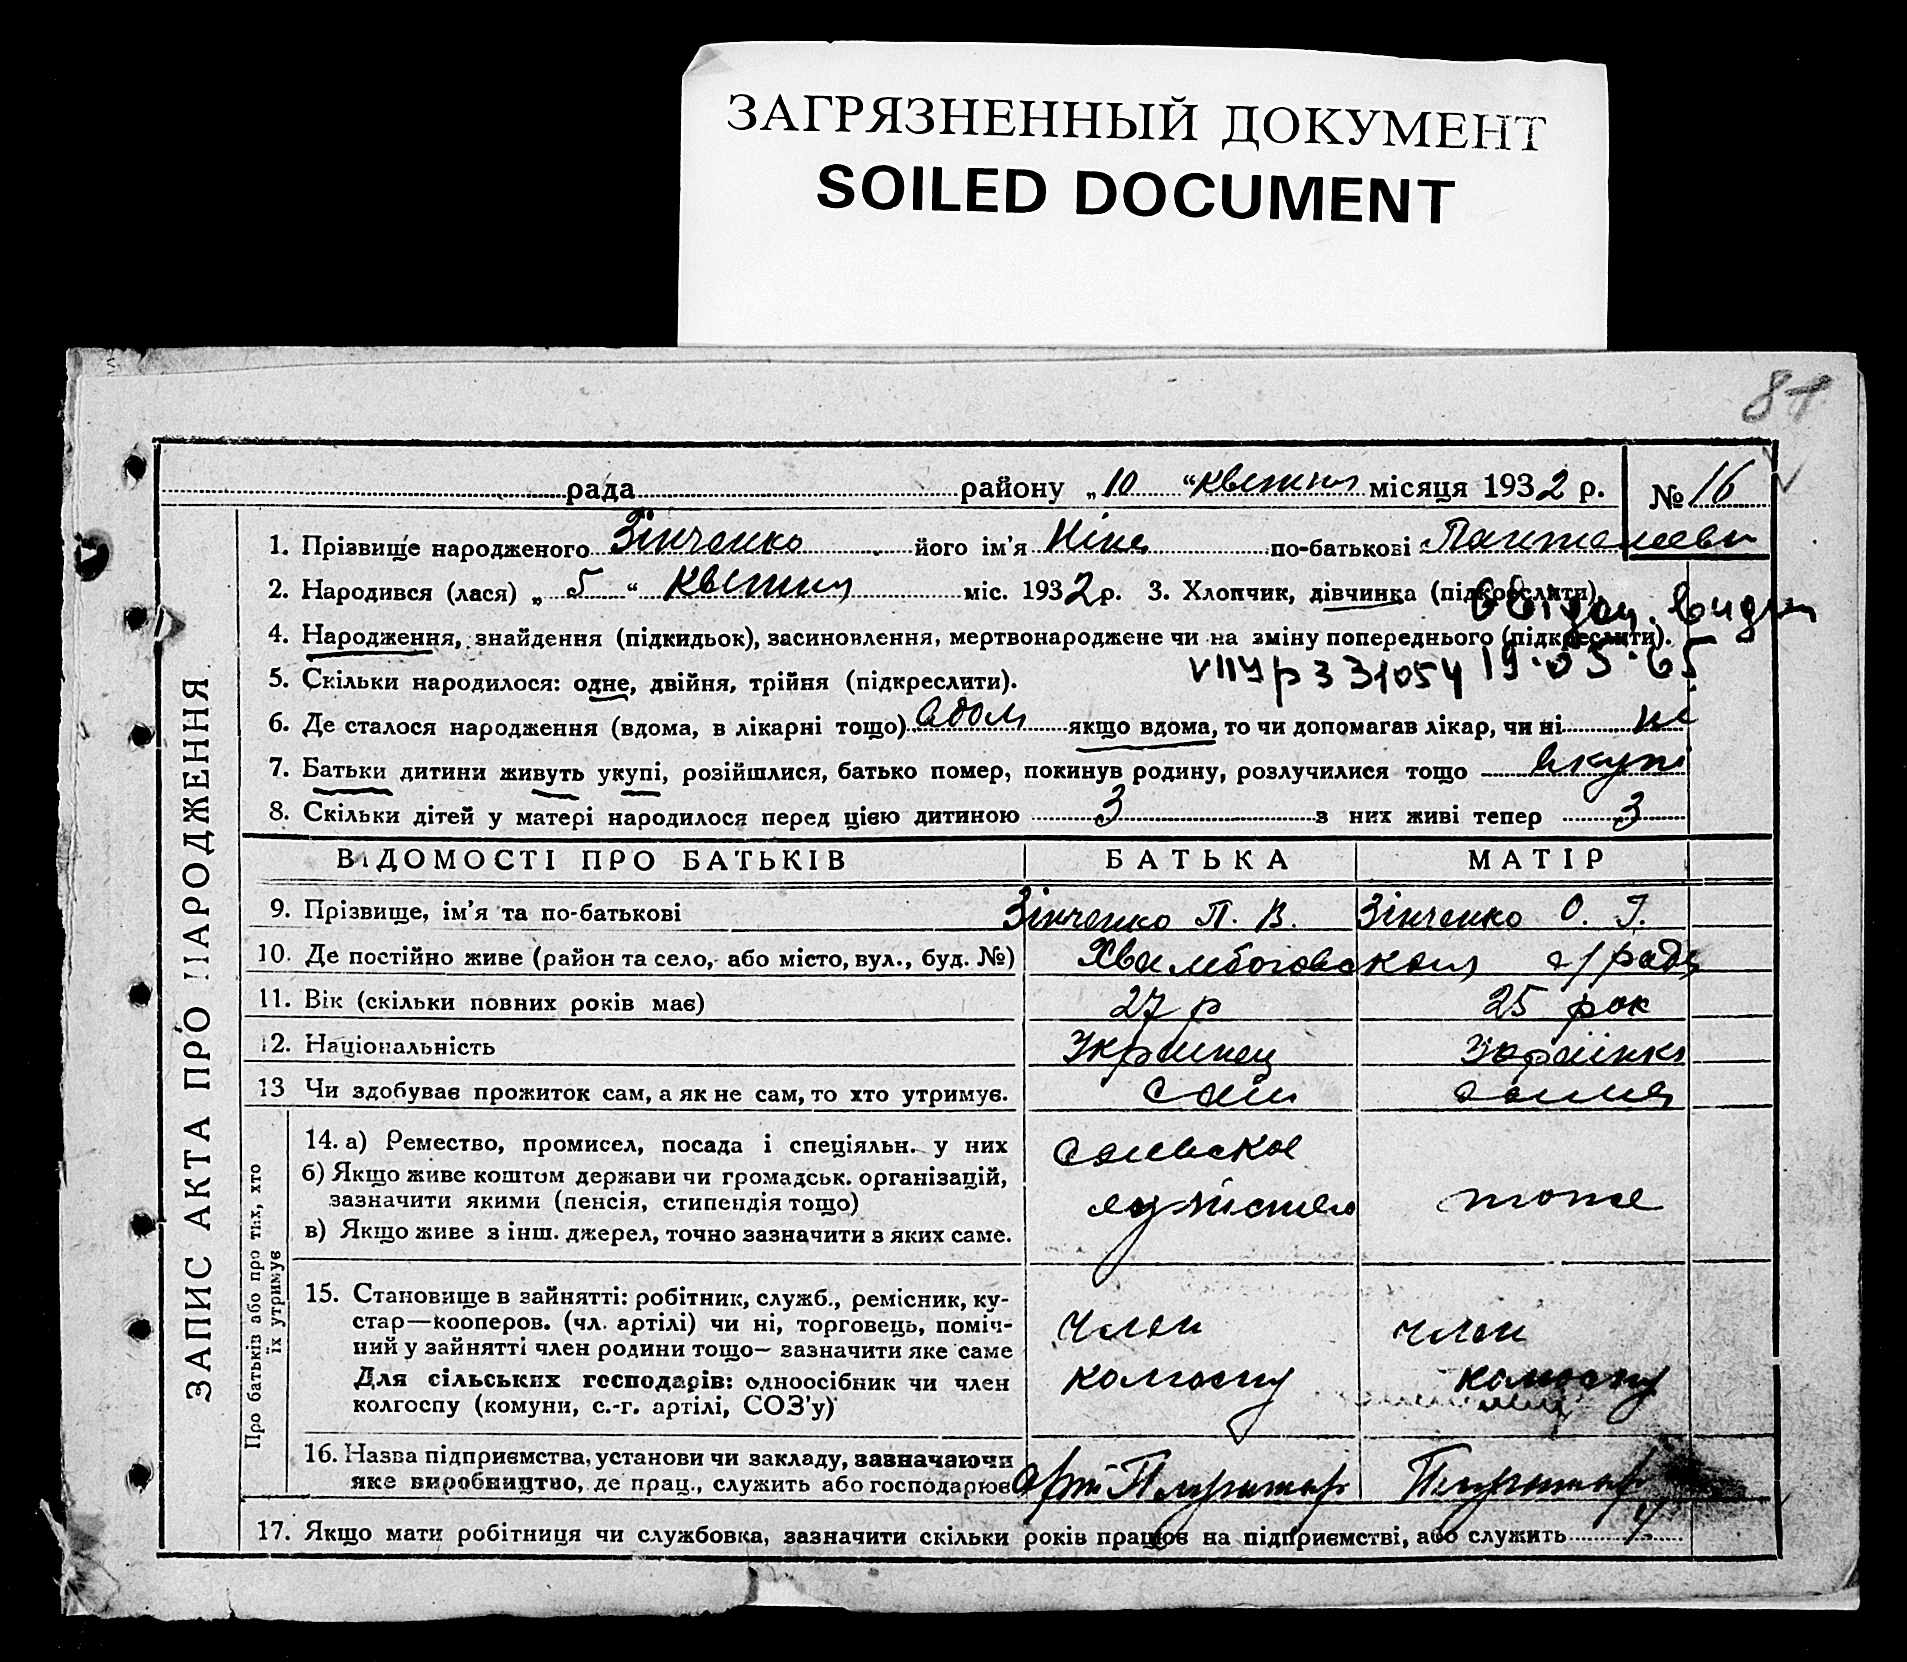 ЗАГРЯЗНЕННЫЙ ДОКУМЕНТ
SOILED DOCUMENT
рада района „10“ квітня місяця 1932 р. № 16
1. Прізвище народженого Зінченко його ім'я Ніна по-батькові
2. Народився (лася) „5“ квітня міс. 1932 р. 3. Хлопчик, дівчинка (підкреслити)
4. Народження, знайдення (підкидьок), засиновлення, мертвонароджене чи на зміну попереднього (підкреслити).
19.05.65
5. Скільки народилося: одне, двійня, трійня (підкреслити).
6. Де сталося народження (вдома, в лікарні тощо) вдома якщо вдома, то чи допомагав лікар, чи ні ні
7. Батьки дитини живуть укупі, розійшлися, батько помер, покинув родину, розлучилися тощо вкупі
8. Скільки дітей у матері народилося перед цією дитиною 3 з них живі тепер 3
ВІДОМОСТІ ПРО БАТЬКІВ БАТЬКА МАТІР
9. Прізвище, ім'я та по-батькові Зінченко П. В. Зінченко О. Г.
10. Де постійно живе (район та село, або місто, вул., буд. №) с/рада
11. Вік (скільки повних років має) 27 р 25 рок
12. Національність Українец Українка
13 Чи здобуває прожиток сам, а як не сам, то хто утримує. сам сама
14. а) Ремество, промисел, посада і спеціяльн. у них
б) Якщо живе коштом держави чи громадськ. організацій,
зазначити якими (пенсія, стипендія тощо) тоже
в) Якщо живе з інш. джерел, точно зазначити з яких саме.
15. Становище в зайнятті: робітник, служб., ремісник, ку-
стар—кооперов. (чл. артілі) чи ні, торговець, поміч- член член
ний у зайнятті член родини тощо— зазначити яке саме
Для сільських господарів: одноосібник чи член колгоспу колгоспу
колгоспу (комуни, с.-г. артілі, СОЗ'у)
16. Назва підприємства, установи чи закладу, зазначаючи
яке виробництво, де прац., служить або господарює
17. Якщо мати робітниця чи службовка, зазначити скільки років працює на підприємстві, або служить
ЗАПИС АКТА ПРО НАРОДЖЕННЯ
Про батьків або про тих, хто
їх утримує